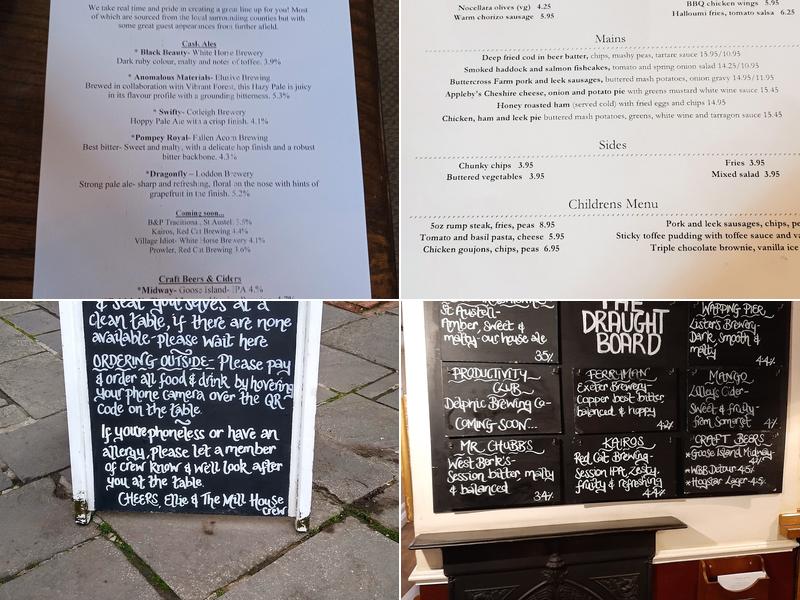 We take real time and pride in creating a great line up for you! Most
of which are sourced from the local surrounding counties but with
some great guest appearances from further afield.
Cask Ales
* Black Beauty- White Horse Brewery
Dark ruby colour, malty and notes of toffee. 3.9%
* Anomalous Materials- Elusive Brewing
Brewed in collaboration with Vibrant Forest, this Hazy Pale is juicy
in its flavour profile with a grounding bitterness. 5.3%
* Swifty- Cotleigh Brewery
Hoppy Pale Ale with a crisp finish. 4.1%
*Pompey Royal- Fallen Acorn Brewing
Best bitter- Sweet and malty, with a delicate hop finish and a robust
bitter backbone. 4.3%
*Dragonfly – Loddon Brewery
Strong pale ale- sharp and refreshing, floral on the nose with hints of
grapefruit in the finish. 5.2%
Coming soon...
B&P Traditional, St Austell 3.5%
Kairos, Red Cat Brewing 4.4%
Village Idiot- White Horse Brewery 4.1%
Prowler, Red Cat Brewing 3.6%
Craft Beers & Ciders
*Midway- Goose Island- IPA 4.%
Nocellara olives (vg) 4.25
Warm chorizo sausage 5.95
BBQ chicken wings 5.95
Halloumi fries, tomato salsa 6.25
Mains
Deep fried cod in beer batter, chips, mushy peas, tartare sauce 15.95/10.95
Smoked haddock and salmon fishcakes, tomato and spring onion salad 14.25/10.95
Buttercross Farm pork and leek sausages, buttered mash potatoes, onion gravy 14.95/11.95
Appleby's Cheshire cheese, onion and potato pie with greens mustard white wine sauce 15.45
Honey roasted ham (served cold) with fried eggs and chips 14.95
Chicken, ham and leek pie buttered mash potatoes, greens, white wine and tarragon sauce 15.45
Sides
Chunky chips 3.95
Buttered vegetables 3.95
Fries 3.95
Mixed salad 3.95
Childrens Menu
5oz rump steak, fries, peas 8.95
Tomato and basil pasta, cheese 5.95
Chicken goujons, chips, peas 6.95
Pork and leek sausages, chips, pe
Sticky toffee pudding with toffee sauce and va
Triple chocolate brownie, vanilla ice
& seat yourselves at a
clean table, if there are none
available- please wait here
ORDERING OUTSIDE- Please pay
& order all food & drink by hovering
your phone camera over the QR
code on the table.
If you're phoneless or have an
allergy, please let a member
of crew know & we'll look after
you at the table.
CHEERS, Ellie & The Mill House
crew
St Austell-
Amber, Sweet &
malty- our house ale
3.5%
THE
DRAUGHT
BOARD
WAPPING PIER
Listers Brewery-
Dark, smooth &
malty
4.4%
PRODUCTIVITY
CLUB
Delphic Brewing Co-
COMING SOON...
FERRYMAN
Exeter Brewery-
Copper best bitter,
balanced & hoppy
4.2%
MANGO
Lilley's Cider-
Sweet & fruity-
from Somerset 4%
MR. CHUBB'S
West Berk's-
Session bitter, malty
& balanced
3.4%
KAIROS
Red Cat Brewing-
Session IPA, Zesty,
fruity & refreshing
4.4%
CRAFT BEERS
*Goose Island Midway-
*WBB Detour 4.5%
*Hogstar Lager 4.5%